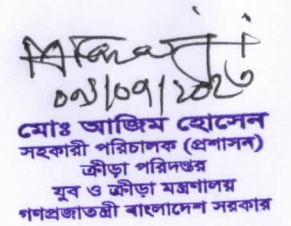 ০৯/০৭/২০২৩
মোঃ আজিম হোসেন
সহকারী পরিচালক (প্রশাসন)
ক্রীড়া পরিদপ্তর
যুব ও ক্রীড়া মন্ত্রণালয়
গণপ্রজাতন্ত্রী বাংলাদেশ সরকার